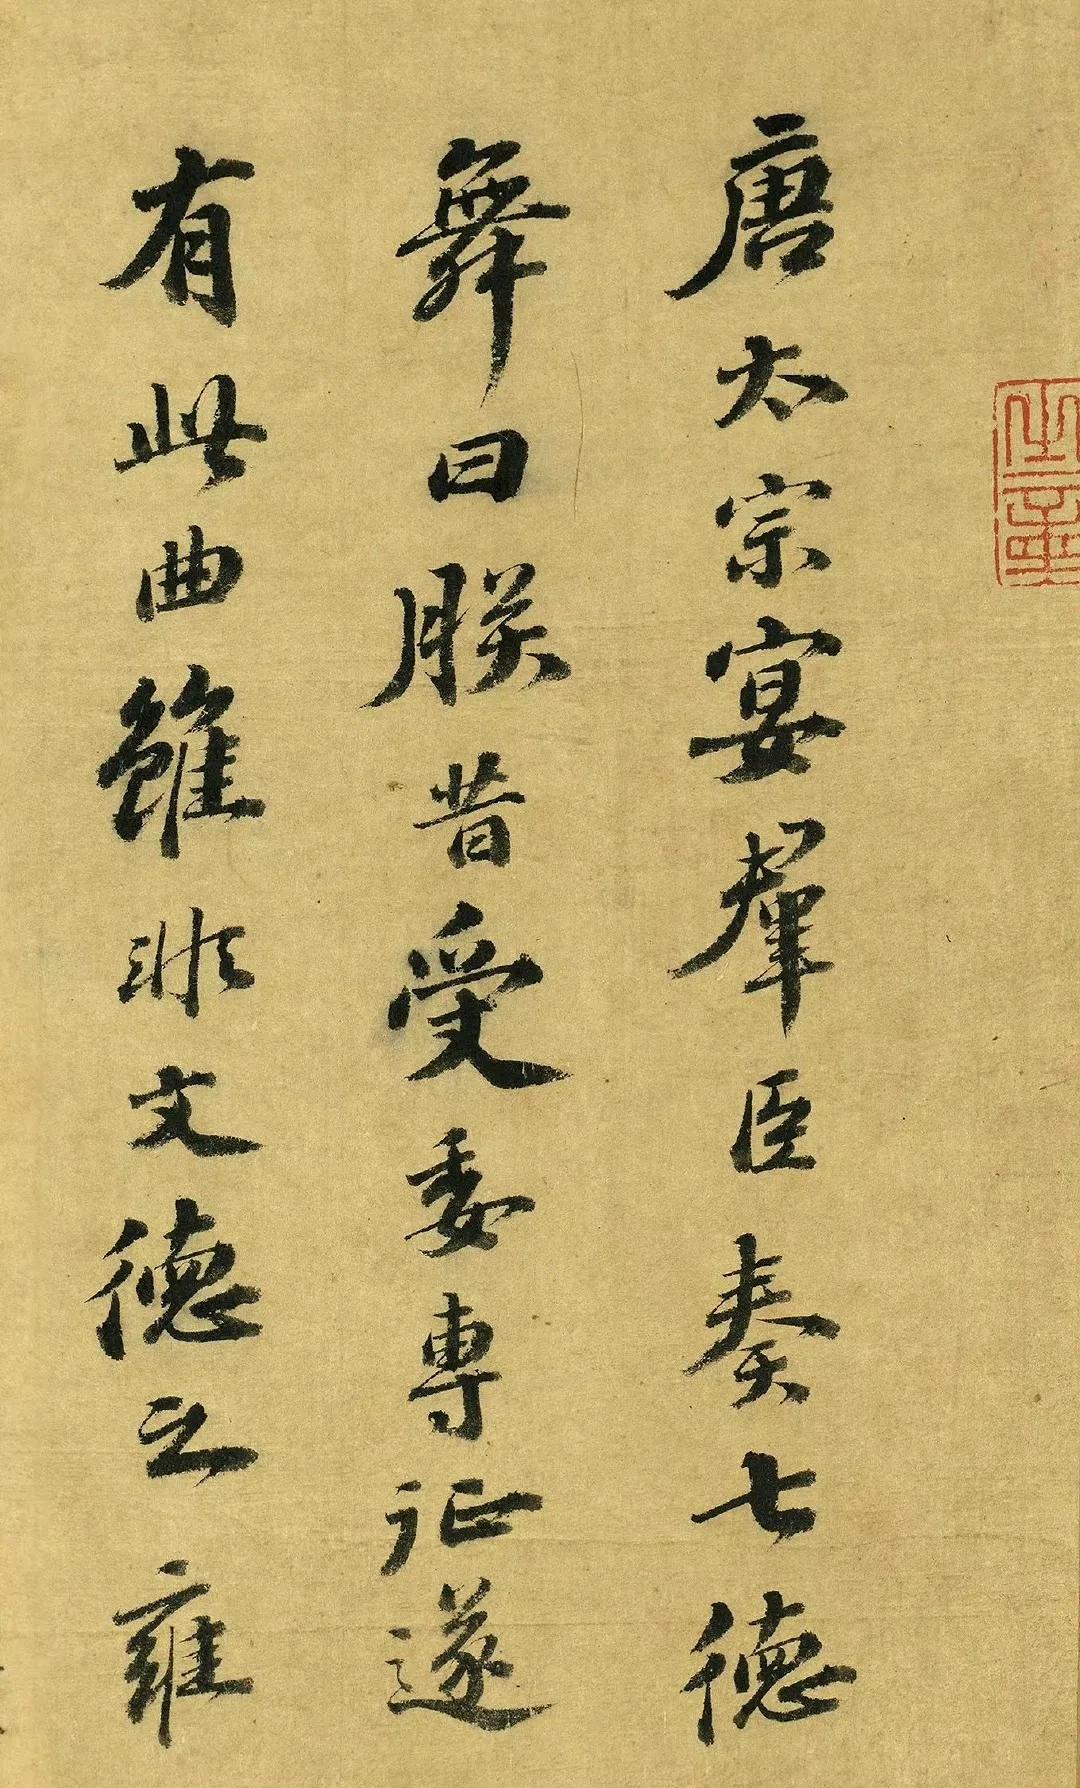 唐太宗宴群臣奏七德
舞曰朕昔受委專征遂
有此曲雖非文德之雍